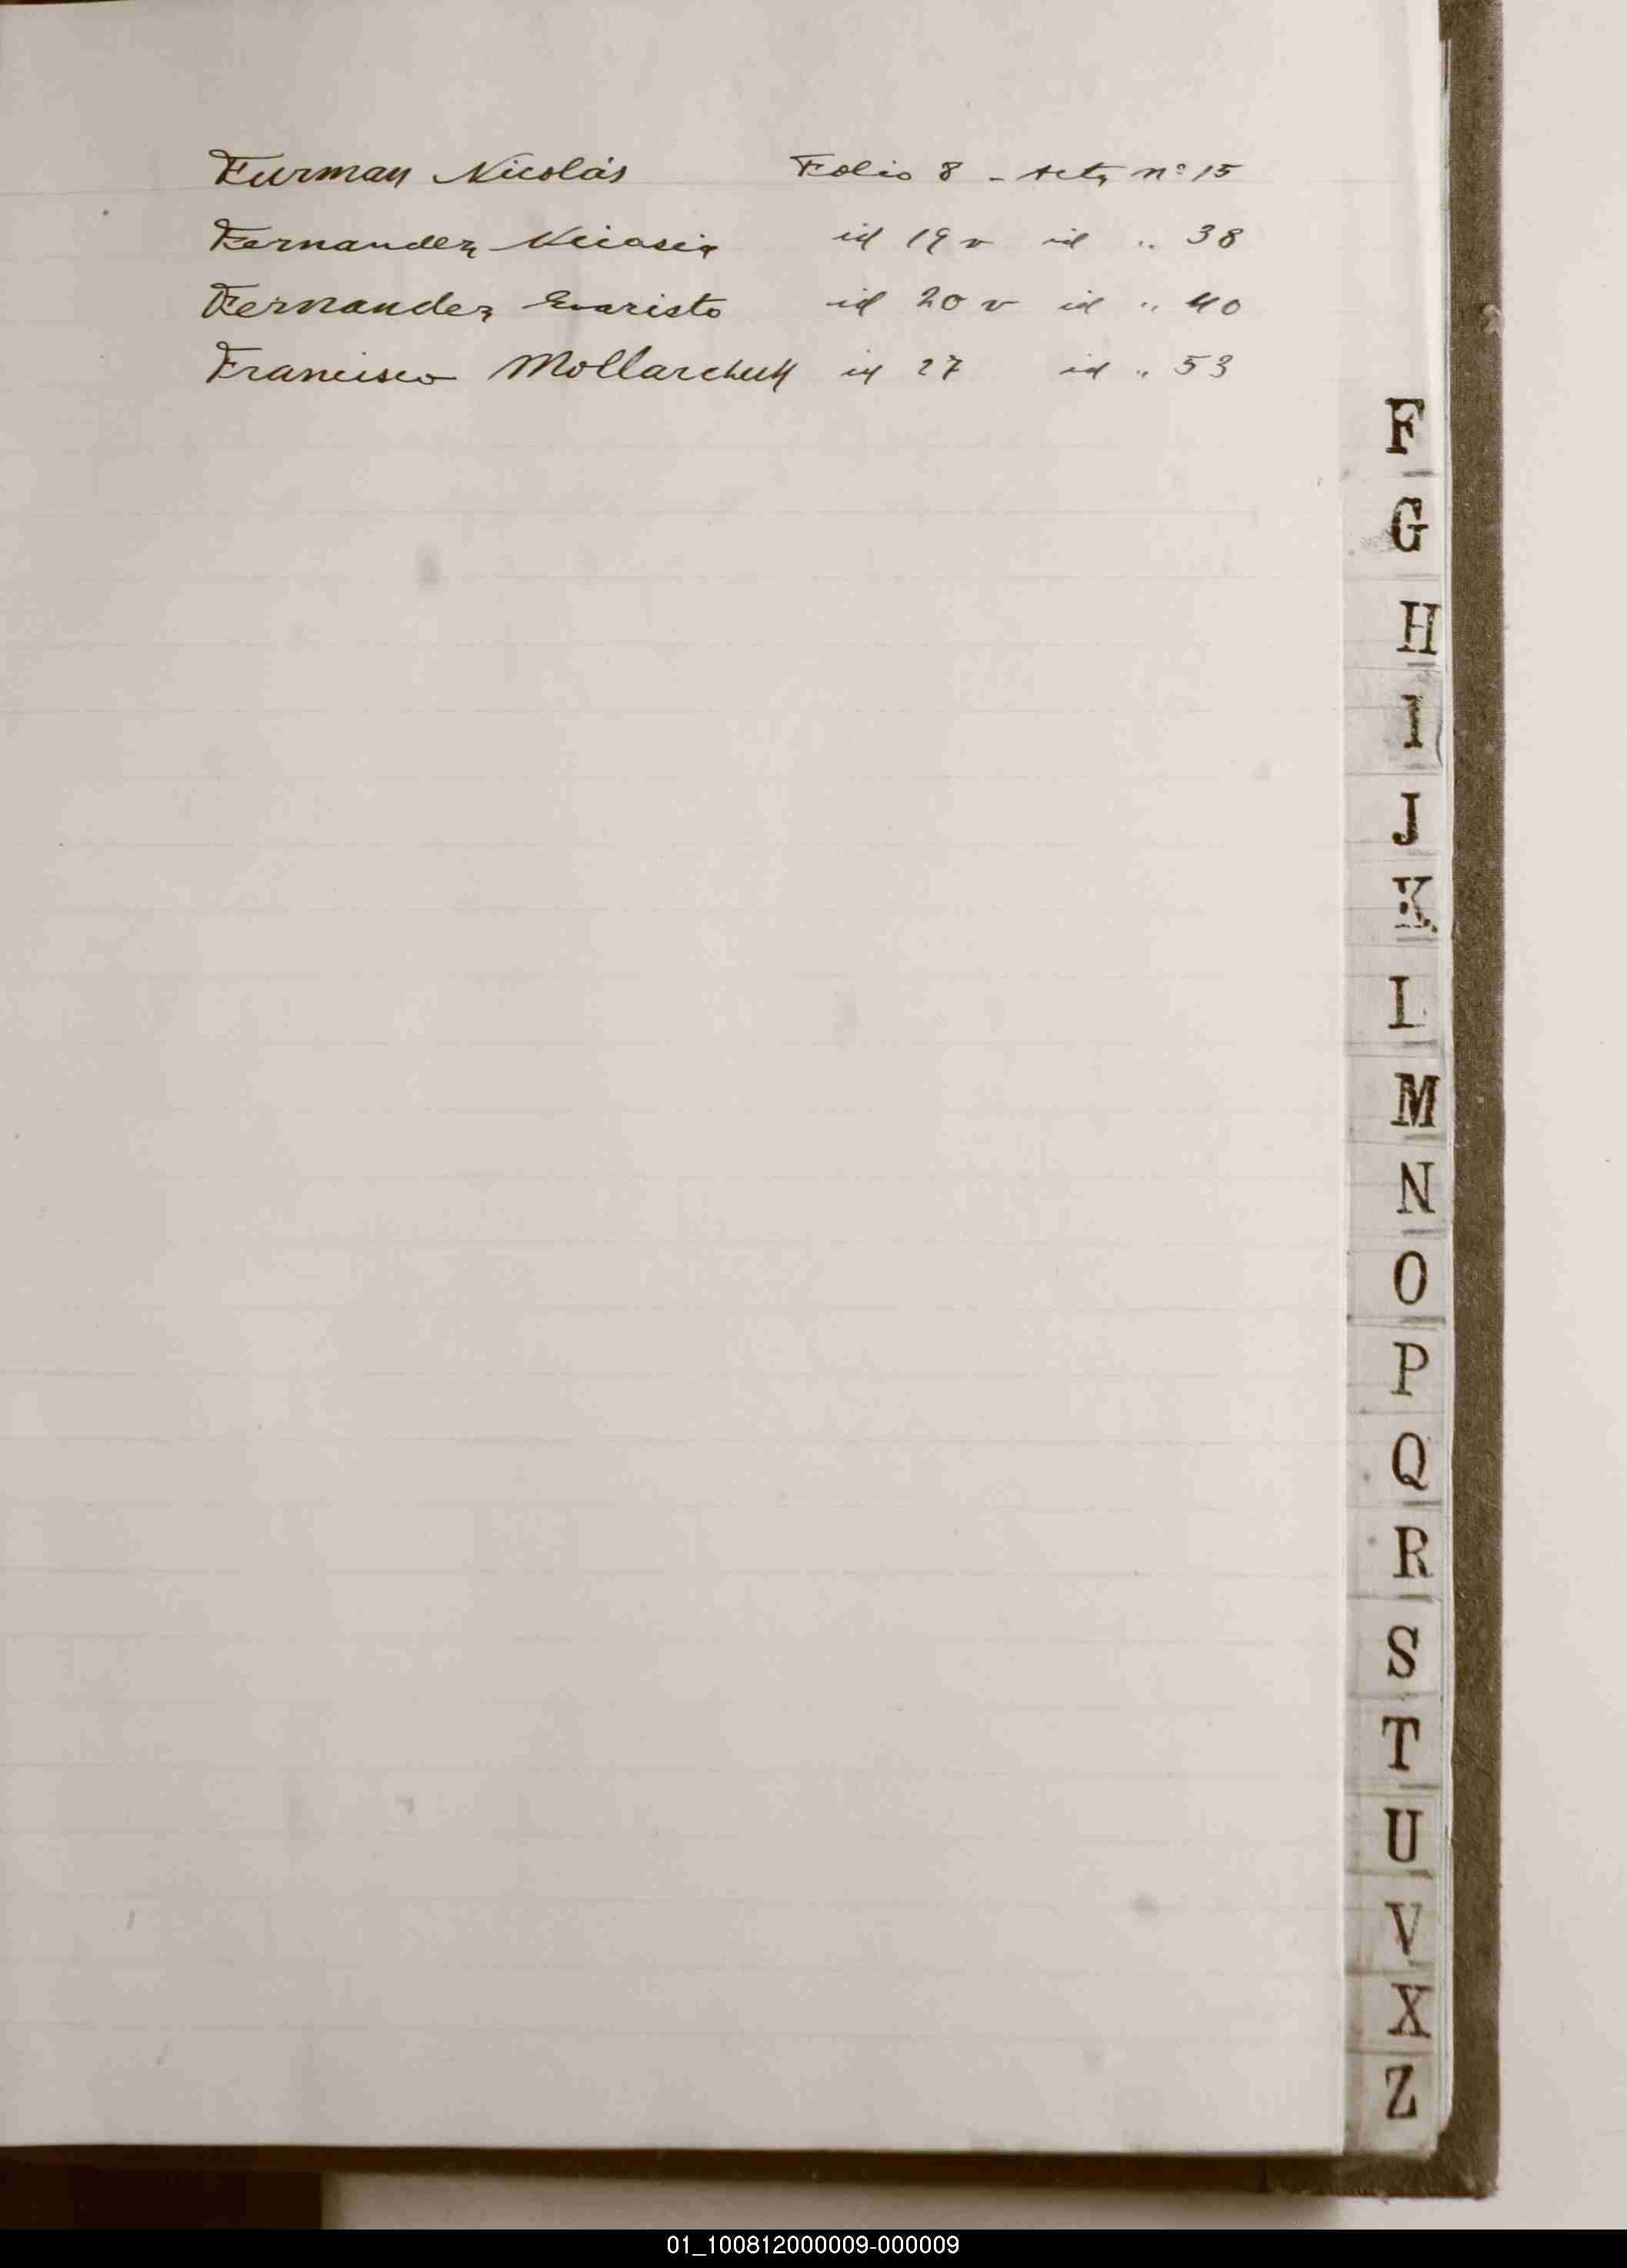 Furman Nicolás Folio 8 - Acta nº 15
Fernandez Nicasia id 19 v id " 38
Fernandez Evaristo id 20 v id " 40
Francisco Mollarchuk id 27 id " 53
F
G
H
I
J
K
L
M
N
O
P
Q
R
S
T
U
V
X
Z
01_100812000009-000009